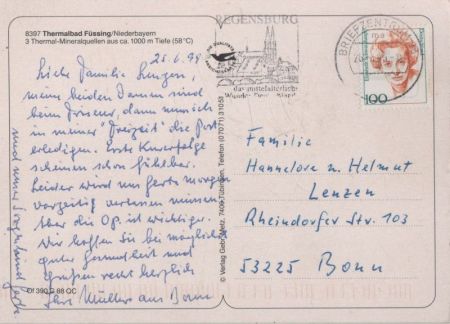 8397 Thermalbad Füssing/Niederbayern
3 Thermal-Mineralquellen aus ca. 1000 m Tiefe (58°C)
25.6.99
Liebe Familie Lenzen,
meine beiden Damen sind
beim Friseur, dann muss ich
in meiner "Freizeit" die Post
erledigen. Erste Kurerfolge
scheinen schon fühlbar.
Leider wird uns Gerta morgen
vorzeitig verlassen müssen
aber die Op. ist wichtiger.
Wir hoffen Sie bei möglichst
guter Gesundheit und
grüßen recht herzlich
Ihre Müllers aus Bonn
und unser
Gerta
Of 390 G 88 QC
© Verlag Gebr. Metz, 7400 Tübingen, Telefon (07071) 31051
REGENSBURG
das mittelalterliche
BRIEFZENTRUM
100
Familie
Hannelore u. Helmut
Lenzen
Rheindorfer Str. 103
53225 Bonn